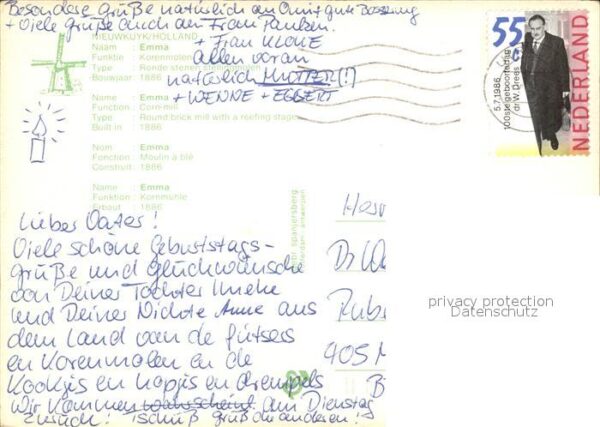 Besondere Grüße natürlich an Omi + gute Besserung
+ Viele Grüße auch an Frau Panken.
+ Frau KLONE
allen voran
natürlich MUTTER (!)
+ WENNE + EGBERT
NIEUWKUYK/HOLLAND
Naam : Emma
Funktie : Korenmolen
Type : Ronde stenen
Bouwjaar : 1886
Name : Emma
Function : Cornmill
Type : Round brick mill with a reefing stage
Built in : 1886
Nom : Emma
Fonction : Moulin à blé
Construit : 1886
Name : Emma
Funktion : Kornmühle
Erbaut : 1886
55 c
NEDERLAND
5.7.1986
100ste geboortedag
dr W. Drees
spanjersberg
rotterdam antwerpen
Lieber Vater!
Viele schöne Geburtstags-
grüße und Glückwünsche
von Deiner Tochter Imeke
und Deiner Nichte Anne aus
dem Land van de fitsers
en Korenmolen en de
Kookjis en happis en drempels
Wir kommen wahrscheinl. am Dienstag
zurück! Tschüß grüß die anderen!
Herr
Dr
Rub
405
privacy protection
Datenschutz